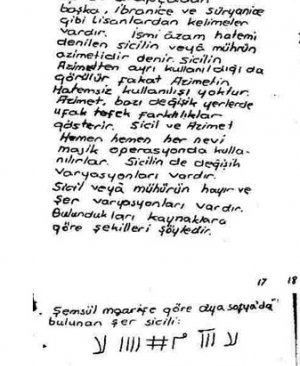 başka, İbranice ve Süryanice
gibi lisanlardan kelimeler
vardır. İsmi âzam hatemi
denilen sicilin veyâ mührün
azimetidir denir. Sicilin
Azimetten ayrı kullanıldığı da
görülür fakat Azimetin
Hatemsiz kullanılışı yoktur.
Azimet, bazı değişik yerlerde
ufak tefek farklılıklar
gösterir. Sicil ve Azimet
Hemen hemen her nevi
majik operasyonda kulla-
nılırlar. Sicilin de değişik
varyasyonları vardır.
Sicil veyâ mühürün hayır ve
Şer varyasyonları vardır.
Bulundukları kaynaklara
göre şekilleri şöyledir.
17 18
Şemsül maarife göre Aya sofya'da
bulunan şer sicili: